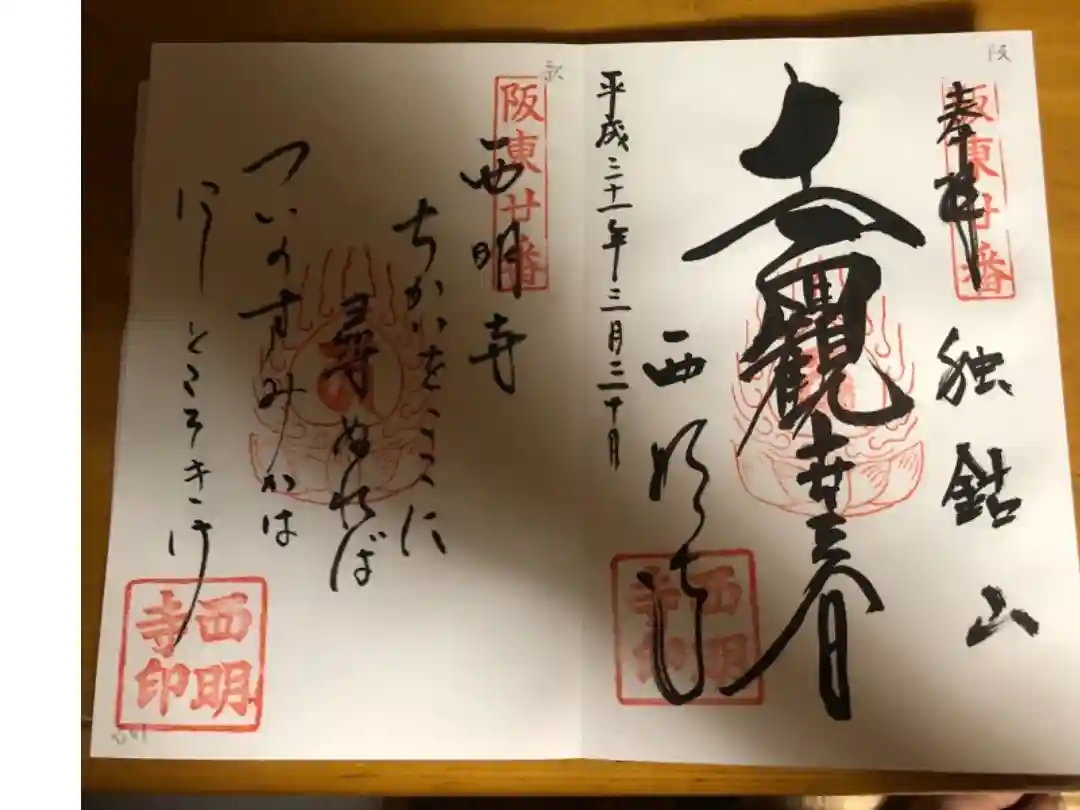 阪
阪東廿番
奉拝
独鈷山
十一面観世音
西明寺
西明
寺印
平成二十一年三月三十日
阪東廿番
西明寺
ちかいをここに
尋ぬれば
ついのすみかは
にし
ところきけ
西明
寺印